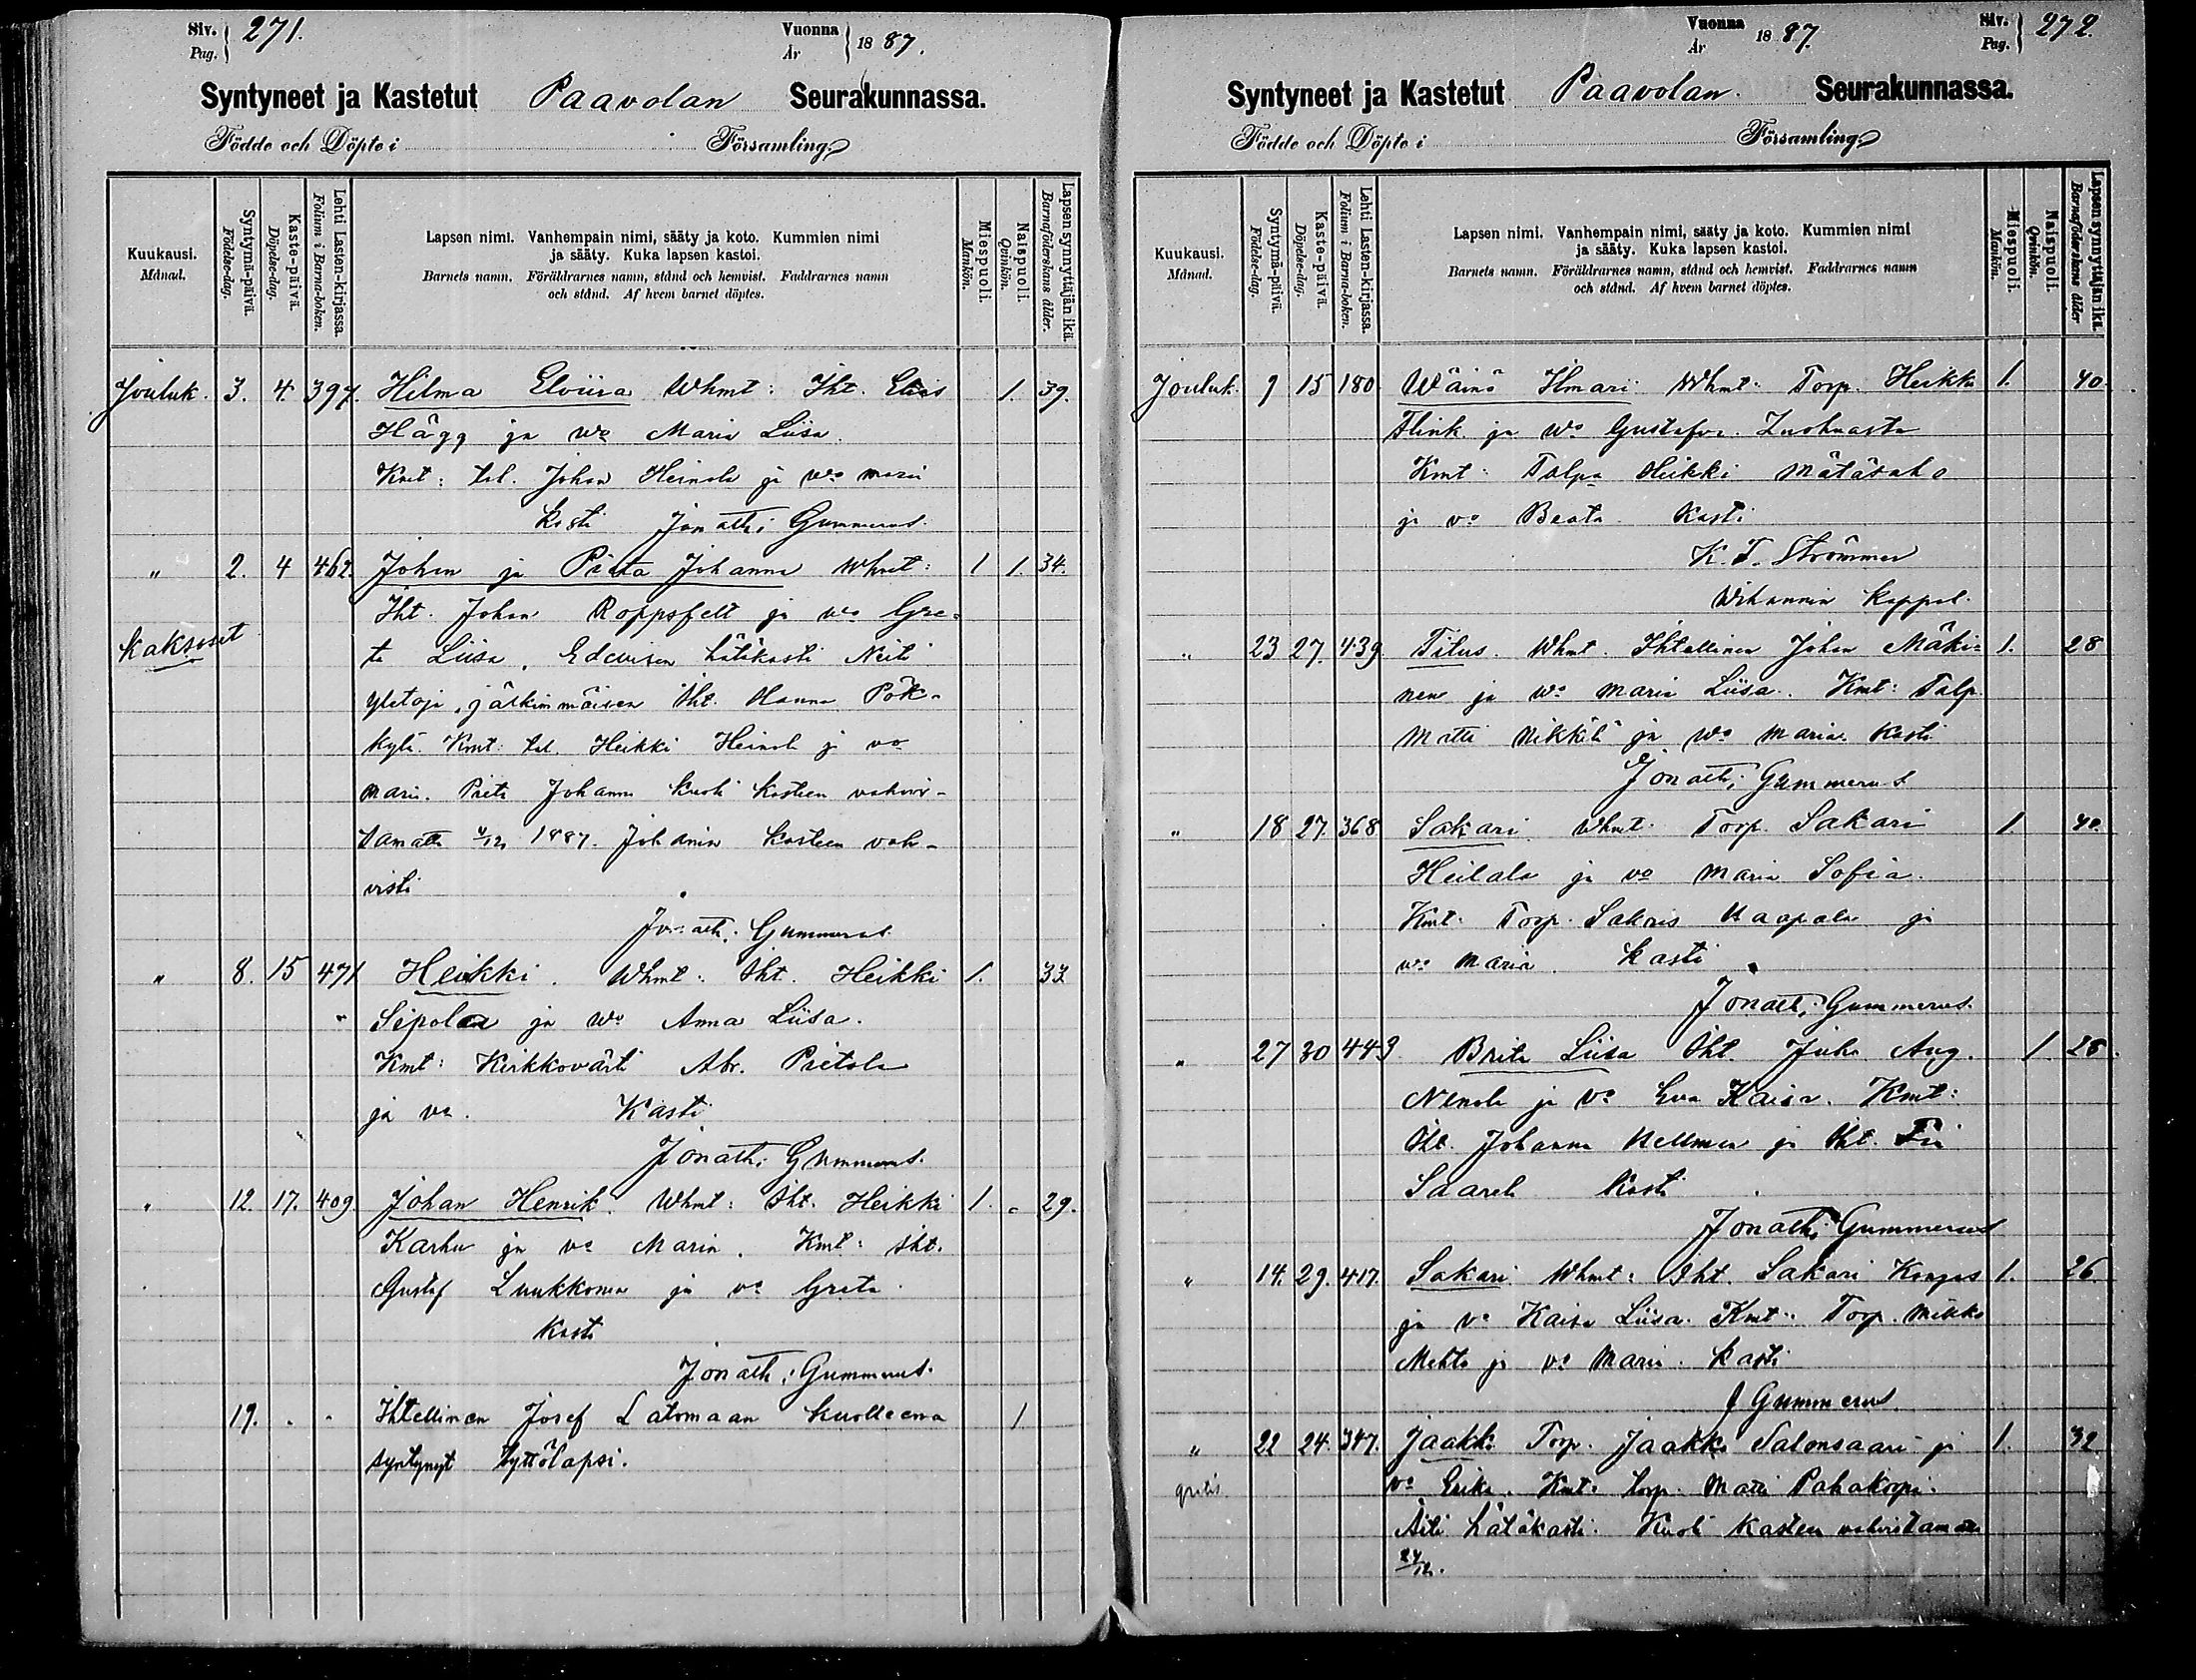 Siv. Pag. } 271.
Vuonna År } 1887.
Syntyneet ja Kastetut Paavolan Seurakunnassa.
Födde och Döpte i Församling
Kuukausi. Månad.
Syntymä-päivä. Födelse-dag.
Kaste-päivä. Döpelse-dag.
Lehti Lasten-kirjassa. Folium i Barna-boken.
Lapsen nimi. Vanhempain nimi, sääty ja koto. Kummien nimi
ja sääty. Kuka lapsen kastoi.
Barnets namn. Föräldrarnes namn, stånd och hemvist. Faddrarnes namn
och stånd. Af hvem barnet döptes.
Miespuoli. Mankön.
Naispuoli. Qvinkön.
Lapsen synnyttäjän ikä. Barnaföderskans ålder.
Jouluk. 3. 4. 397. Hilma Elviira Whmt: Iht. Elias 1. 39.
Hägg ja wo Maria Liisa.
Kmt: tal. Johan Heinola ja wo Maria
kasti Jonath: Gummerus.
" 2. 4 462. Johan ja Prita Johanna Whmt: 1 1. 34.
Iht. Johan Roppsfelt ja wo Gre-
kaksoset ta Liisa, Edewisen hätäkasti Neiti
Yletoja, jälkimmäisen Iht. Hanna Pök-
kylä. Kmt: tal. Heikki Heinola ja vo
Maria. Prita Johanna kuoli kasteen vahvis-
tamatta 4/12 1887. Johanin kasteen vah-
visti
Jonath: Gummerus.
" 8. 15 471 Heikki. Whmt: Iht. Heikki 1. 33
" Sipola ja wo Anna Liisa.
Kmt: Kirkkovärti Abr. Pietola
ja vo. Kasti
Jonath: Gummerus.
" 12. 17. 409. Johan Henrik. Whmt: Iht. Heikki 1. " 29.
Karhu ja vo Maria. Kmt: Iht.
Gustaf Luukkonen ja vo Greta.
Kasti
Jonath: Gummerus.
19. " " Ihtellinen Josef Latomaan kuolleena 1.
syntynyt tyttölapsi.
Vuonna År 1887.
Siv. Pag. } 272.
Syntyneet ja Kastetut Paavolan. Seurakunnassa.
Födde och Döpte i Församling
Kuukausi. Månad.
Syntymä-päivä. Födelse-dag.
Kaste-päivä. Döpelse-dag.
Lehti Lasten-kirjassa. Folium i Barna-boken.
Lapsen nimi. Vanhempain nimi, sääty ja koto. Kummien nimi
ja sääty. Kuka lapsen kastoi.
Barnets namn. Föräldrarnes namn, stånd och hemvist. Faddrarnes namn
och stånd. Af hvem barnet döptes.
Miespuoli. Mankön.
Naispuoli. Qvinkön.
Lapsen synnyttäjän ikä. Barnaföderskans ålder
Jouluk. 15 180 Wäinö Ilmari Whmt: Torp. Heikki 1. 40.
Flink ja wo Gustafva
Kmt: Talp. Heikki Mätäsaho
ja vo Beata. Kasti
K. F. Strömmer
Wihannin Kappal.
" 23 27. 439 Titus. Whmt. Ihtellinen Johan Mäki- 1. 28
nen ja wo Maria Liisa. Kmt: Talp.
Matti Mikkilä ja wo Maria. Kasti
Jonath: Gummerus
" 18 27. 368 Sakari Whmt: Torp. Sakari 1. 40.
Heilala ja vo Maria Sofia.
Kmt: Torp. Sakris Haapala ja
vo Maria. Kasti
Jonath: Gummerus.
" 27 30 449 Brita Liisa Iht. Juho Aug. 1 28.
Nenola ja vo Eva Kaisa. Kmt:
Iht. Johanna Hellman ja Iht. Fia
Saarela Kasti
Jonath: Gummerus
" 14. 29. 417. Sakari. Whmt: Iht. Sakari Kangas 1. 26
ja vo Kaisa Liisa. Kmt: Torp. Mikko
Mehto ja vo Maria. Kasti
J Gummerus.
" 22 24. 347. Jaakko Torp. Jaakko Salonsaari ja 1. 32
gratis vo Erika. Kmt: torp. Matti Pahakopi.
Äiti hätäkasti. Kuoli kasteen vahvistamatta
24/12.